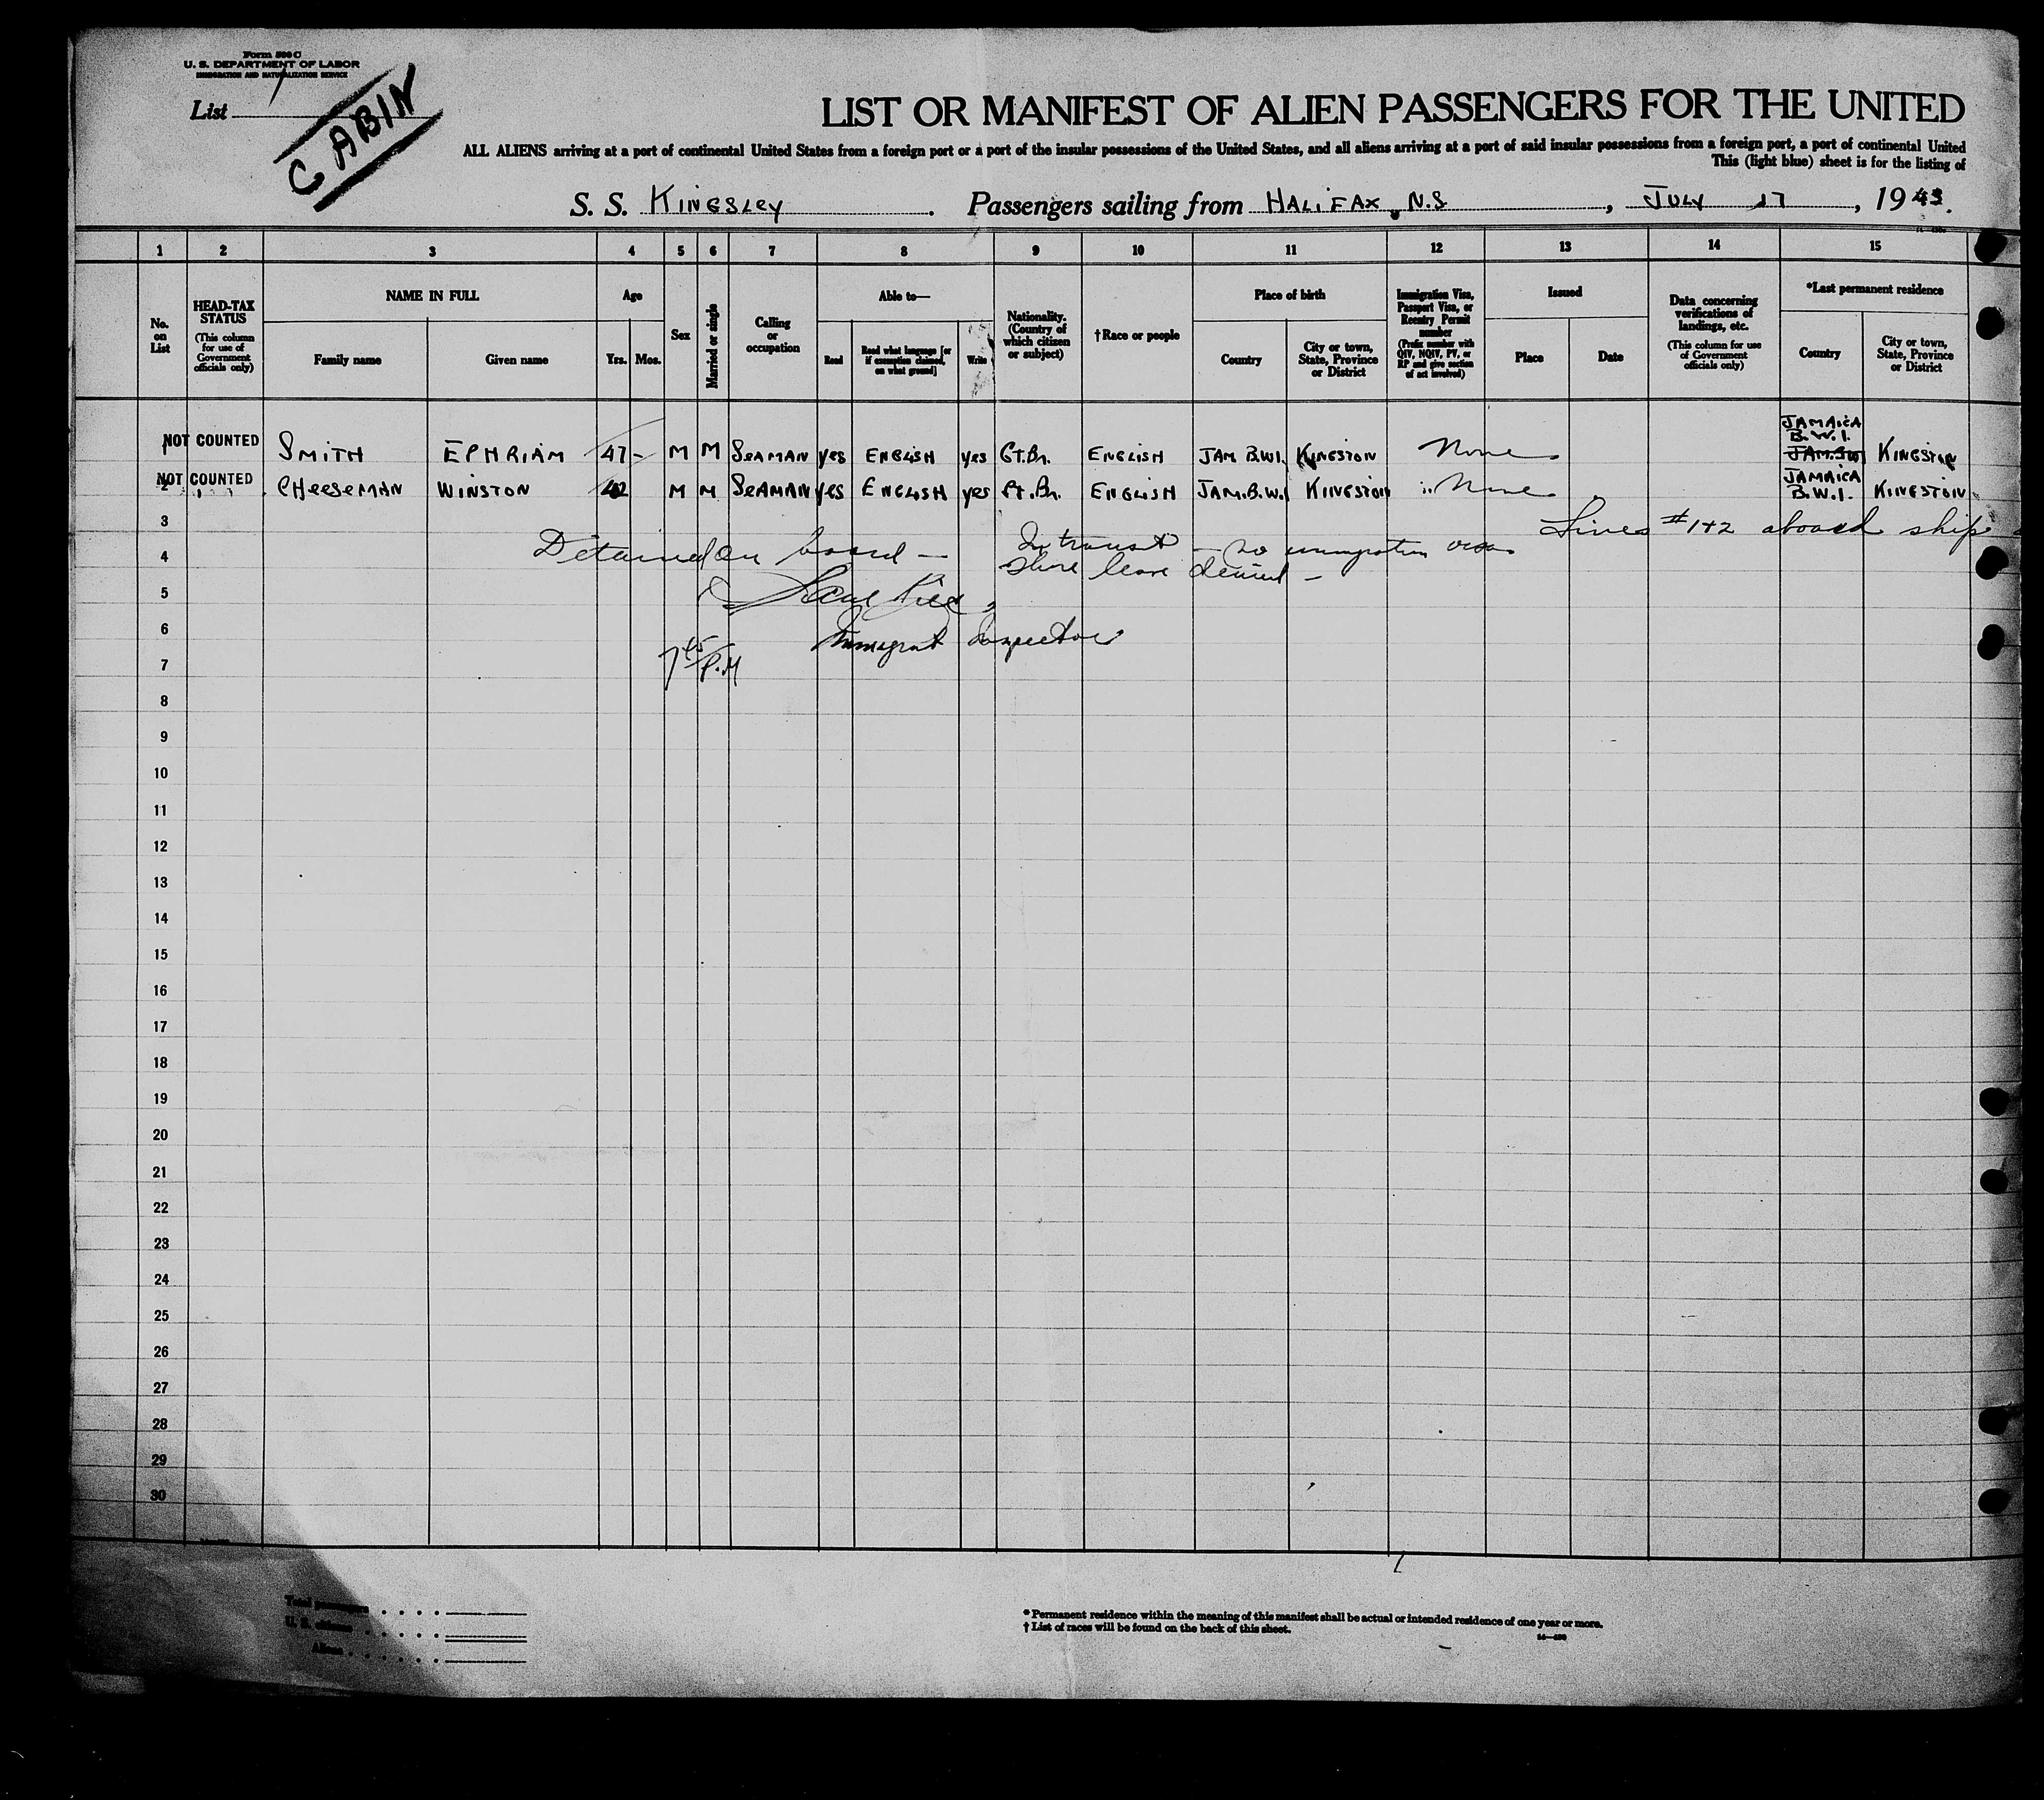 Form 500 C
U. S. DEPARTMENT OF LABOR
IMMIGRATION AND NATURALIZATION SERVICE
List 1
CABIN
LIST OR MANIFEST OF ALIEN PASSENGERS FOR THE UNITED
ALL ALIENS arriving at a port of continental United States from a foreign port or a port of the insular possessions of the United States, and all aliens arriving at a port of said insular possessions from a foreign port, a port of continental United
This (light blue) sheet is for the listing of
S. S. KINGSLEY. Passengers sailing from HALIFAX, N.S, JULY 17, 1943.
1 2 3 4 5 6 7 8 9 10 11 12 13 14 15
No. on List
HEAD-TAX STATUS
(This column for use of Government officials only)
NAME IN FULL
Family name Given name
Age
Yrs. Mos.
Sex
Married or single
Calling or occupation
Able to—
Read
Read what language [or if exemption claimed, on what ground]
Write
Nationality. (Country of which citizen or subject)
†Race or people
Place of birth
Country
City or town, State, Province or District
Immigration Visa, Passport Visa, or Reentry Permit number
(Prefix number with QIV, NQIV, PV, or RP and give section of act involved)
Issued
Place Date
Data concerning verifications of landings, etc.
(This column for use of Government officials only)
*Last permanent residence
Country
City or town, State, Province or District
1 NOT COUNTED SMITH EPHRIAM 47 M M SEAMAN yes ENGLISH yes GT.Br. ENGLISH JAM B.W.I. KINGSTON None JAMAICA B.W.I. KINGSTON
2 NOT COUNTED CHEESEMAN WINSTON 42 M M SEAMAN yes ENGLISH yes Gt.Br. ENGLISH JAM.B.W.I KINGSTON None JAMAICA B.W.I. KINGSTON
3 Lines #1+2 aboard ship
4 Detained on board — In transit — no immigration visas
Shore leave denied —
5
6 Immigrant Inspector
7 7 45 P.M
8
9
10
11
12
13
14
15
16
17
18
19
20
21
22
23
24
25
26
27
28
29
30
Total passengers
U. S. citizens
Aliens
* Permanent residence within the meaning of this manifest shall be actual or intended residence of one year or more.
† List of races will be found on the back of this sheet.